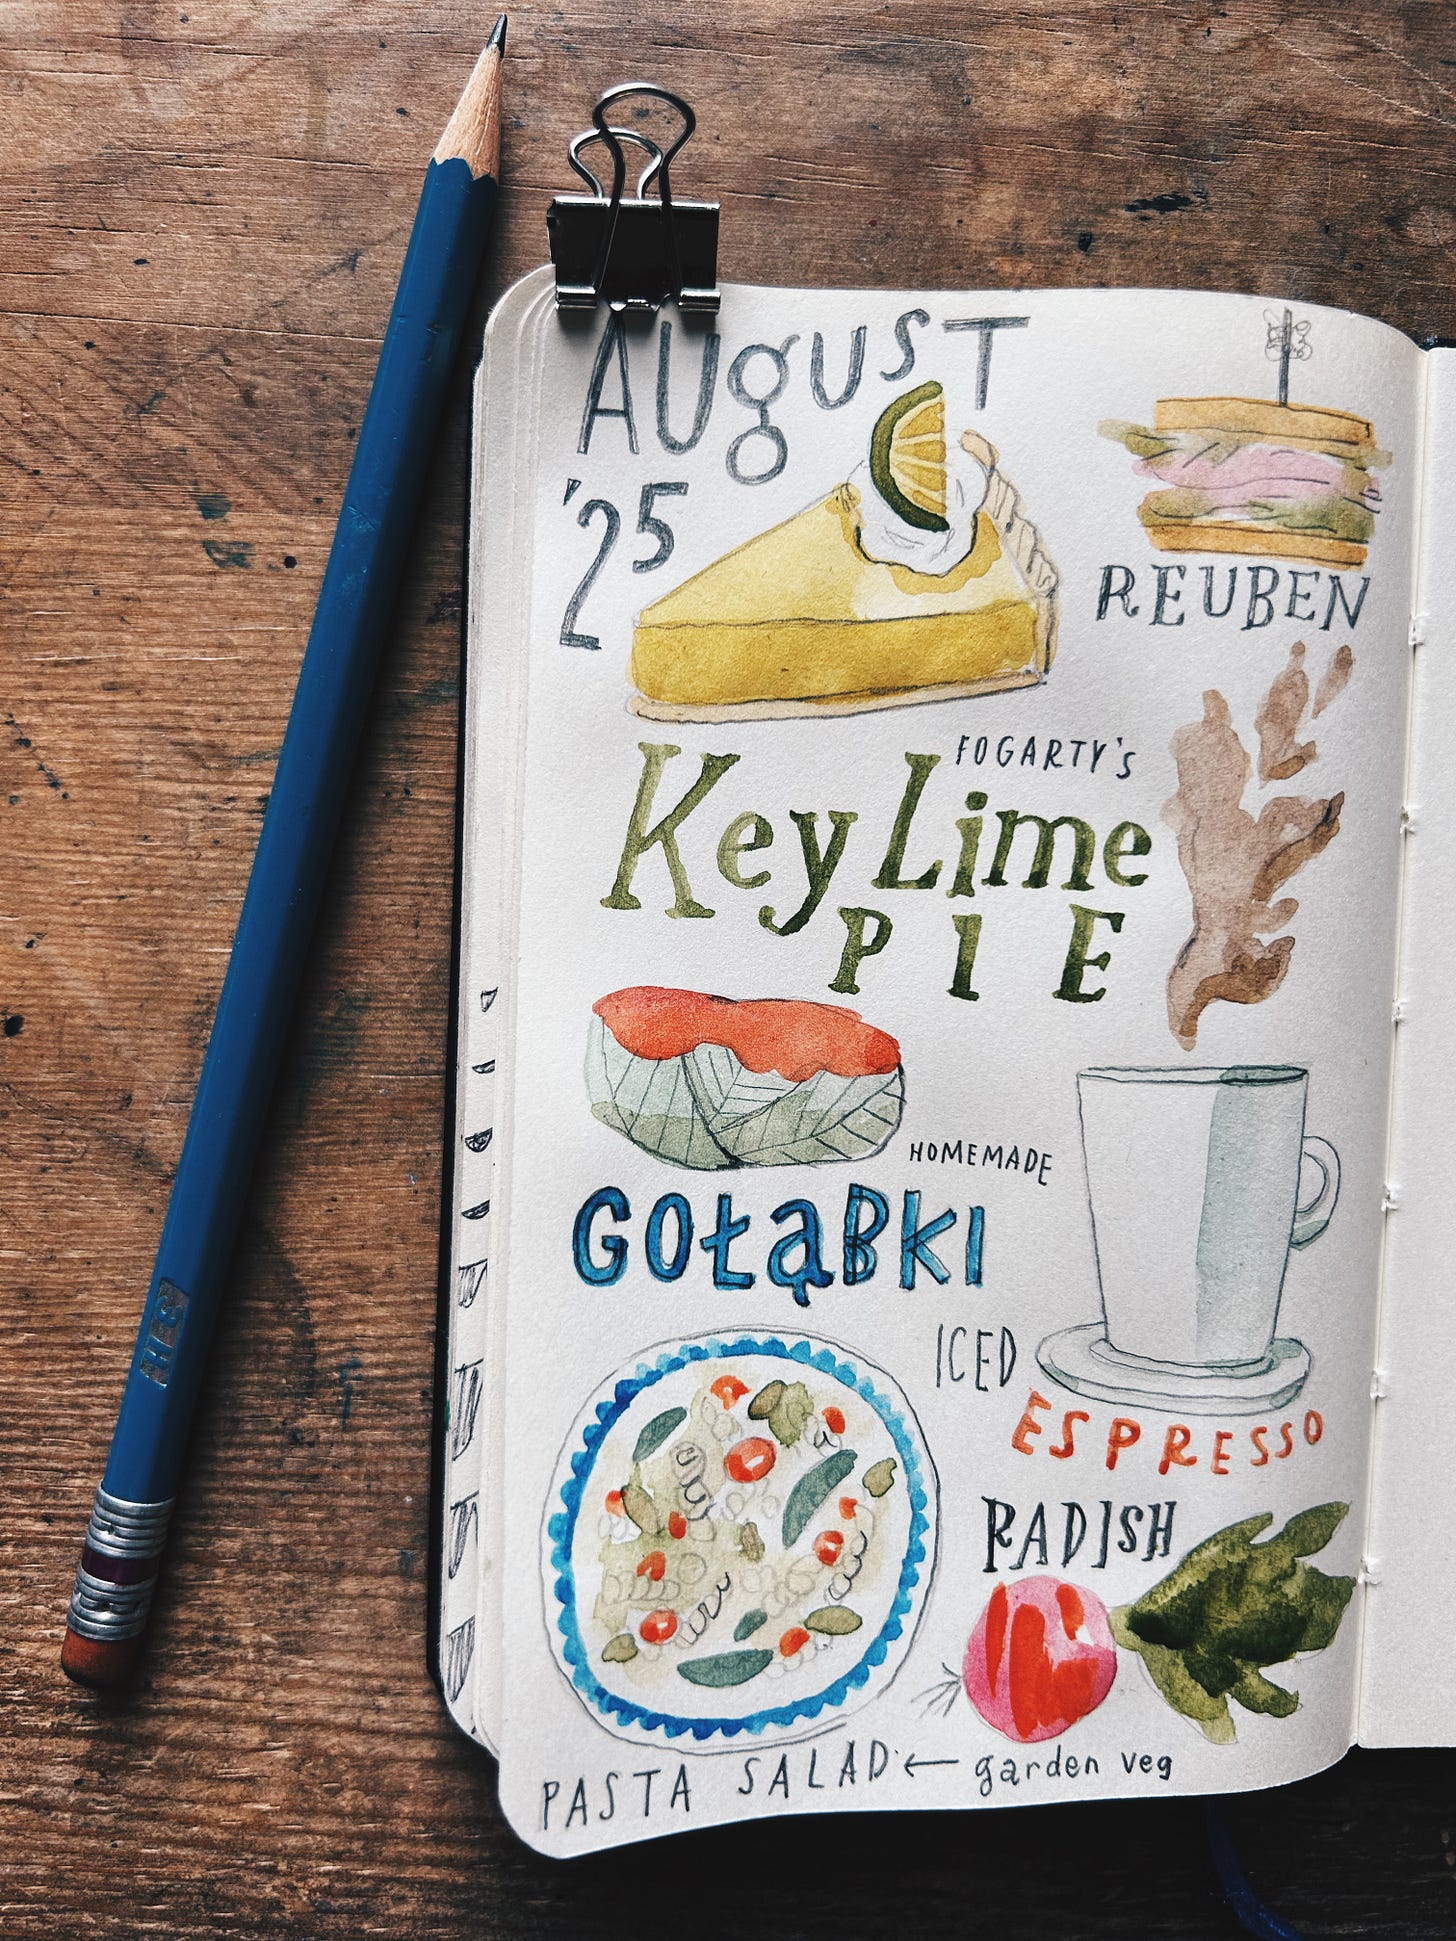 AUgUsT
'25
REUBEN
FOGARTY's
Key Lime
PIE
HOMEMADE
GOŁąBKI
ICED
ESPRESSO
RADISH
PASTA SALAD ← garden veg